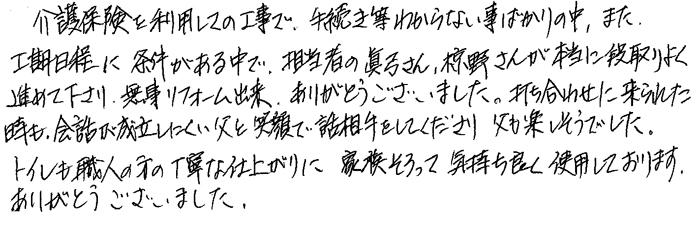 介護保険を利用しての工事で、手続き等わからない事ばかりの中、また、
工期日程に条件がある中で、担当者の真弓さん、椋野さんが本当に段取りよく
進めて下さり、無事リフォーム出来、ありがとうございました。打ち合わせに来られた
時も、会話が成立しにくい父と笑顔で話相手をしてくださり父も楽しそうでした。
トイレも職人の方の丁寧な仕上がりに家族そろって気持ち良く使用しております。
ありがとうございました。